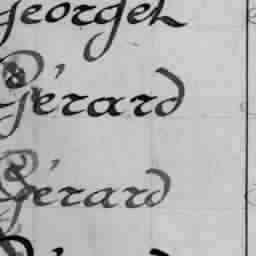 Georget
Gérard
Gérard